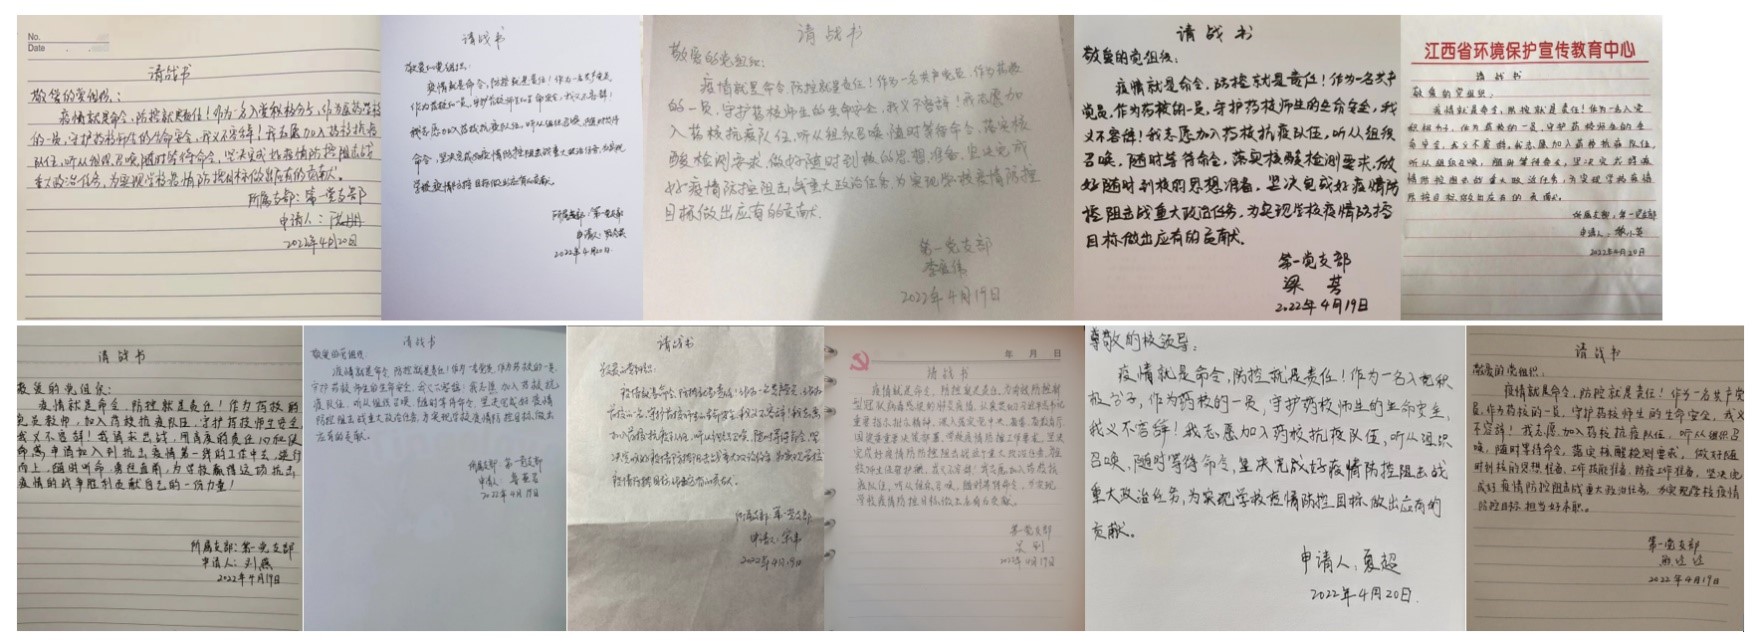 No.
Date
请战书
敬爱的党组织：
疫情就是命令，防控就是责任！作为一名入党积极分子，作为药校
的一员，守护药校师生的生命安全，我义不容辞！我志愿加入药校抗疫
队伍，听从组织召唤，随时等待命令，坚决完成好疫情防控阻击战
重大政治任务，为实现学校疫情防控目标做出应有的贡献。
所属支部：第一党支部
申请人：
2022年4月20日
请战书
敬爱的党组织：
疫情就是命令，防控就是责任！作为一名共产党员，
作为药校的一员，守护药校师生的生命安全，我义不容辞！
我志愿加入药校抗疫队伍，听从组织召唤，随时等待
命令，坚决完成好疫情防控阻击战重大政治任务，为实现
学校疫情防控目标做出应有的贡献。
所属支部：第一党支部
申请人：
2022年4月20日
请战书
敬爱的党组织：
疫情就是命令，防控就是责任！作为一名共产党员，作为药校
的一员，守护药校师生的生命安全，我义不容辞！我志愿加
入药校抗疫队伍，听从组织召唤，随时等待命令，落实核
酸检测要求，做好随时到校的思想准备，坚决完成
好疫情防控阻击战重大政治任务，为实现学校疫情防控
目标做出应有的贡献。
第一党支部
2022年4月19日
请战书
敬爱的党组织：
疫情就是命令，防控就是责任！作为一名共产
党员，作为药校的一员，守护药校师生的生命安全，我
义不容辞！我志愿加入药校抗疫队伍，听从组织
召唤，随时等待命令，落实核酸检测要求，做
好随时到校的思想准备，坚决完成好疫情防
控阻击战重大政治任务，为实现学校疫情防控
目标做出应有的贡献。
第一党支部
梁芸
2022年4月19日
江西省环境保护宣传教育中心
请战书
敬爱的党组织：
疫情就是命令，防控就是责任！作为一名入党
积极分子，作为药校的一员，守护药校师生的生
命安全，我义不容辞，我志愿加入药校抗疫队伍，
听从组织召唤，随时等待命令，坚决完成好疫
情防控阻击战重大政治任务，为实现学校疫情
防控目标做出应有的贡献。
所属支部：第一党支部
申请人：
2022年4月20日
请战书
敬爱的党组织：
疫情就是命令，防控就是责任！作为药校的
党员教师，加入药校抗疫队伍，守护药校师生安全，
我义不容辞！我请求出战，用高度的责任心和使
命感，申请加入到抗击疫情第一线的工作中去，逆行
而上，随时听命，勇往直前，为学校赢得这场抗击
疫情的战争胜利贡献自己的一份力量！
所属支部：第一党支部
申请人：刘燕
2022年4月19日
请战书
敬爱的党组织：
疫情就是命令，防控就是责任！作为一名党员，作为药校的一员，
守护药校师生的生命安全，我义不容辞！我志愿加入药校抗
疫队伍，听从组织召唤，随时等待命令，坚决完成好疫情
防控阻击战重大政治任务，为实现学校疫情防控目标，做出
应有的贡献。
所属支部 第一党支部
申请人
2022年4月19日
请战书
敬爱的党组织：
疫情就是命令，防控就是责任！作为一名党员，作为
药校的一员，守护药校师生的生命安全，我义不容辞！我志愿
加入药校抗疫队伍，听从组织召唤，随时等待命令，坚
决完成好疫情防控阻击战重大政治任务，为实现学校
疫情防控目标，做出应有的贡献。
所属支部：第一党支部
申请人：
2022年4月19日
年 月 日
请战书
第一党支部
吴剑
2022年4月19日
尊敬的校领导：
疫情就是命令，防控就是责任！作为一名入党积
极分子，作为药校的一员，守护药校师生的生命安全，
我义不容辞！我志愿加入药校抗疫队伍，听从组织
召唤，随时等待命令，坚决完成好疫情防控阻击战
重大政治任务，为实现学校疫情防控目标做出应有的
贡献。
申请人：夏超
2022年4月20日
请战书
敬爱的党组织：
疫情就是命令，防控就是责任！作为一名共产党
员，作为药校的一员，守护药校师生的生命安全，我义
不容辞！我志愿加入药校抗疫队伍，听从组织召
唤，随时等待命令，落实核酸检测要求，做好随
时到校的思想准备、工作技能准备、防疫工作准备，坚决完
成好疫情防控阻击战重大政治任务，为实现学校疫情
防控目标担当好本职。
第一党支部
2022年4月19日